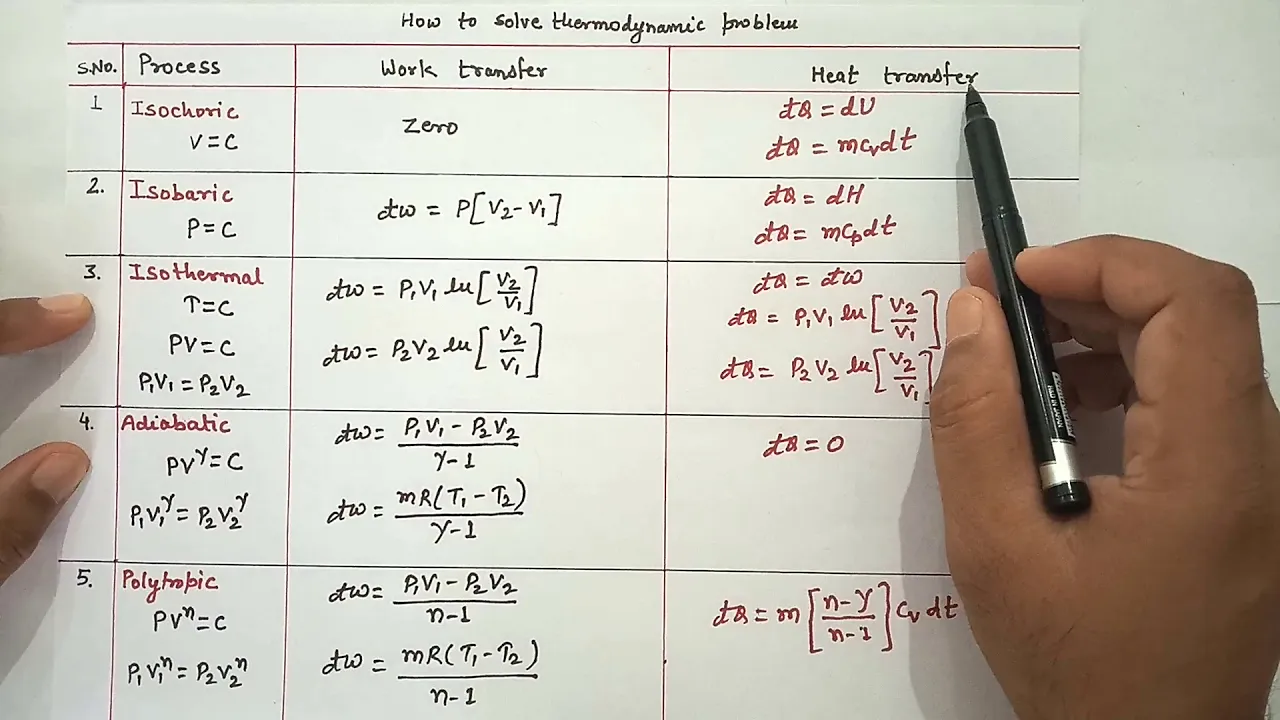 How to solve thermodynamic problem
S.No. Process Work transfer Heat transfer
1 Isochoric
V=C
Zero
dQ = dU
dQ = mCvdt
2. Isobaric
P=C
dw = P[V2-V1]
dQ = dH
dQ = mCpdt
3. Isothermal
T=C
PV=C
P1V1 = P2V2
dw = P1V1 ln[V2/V1]
dw = P2V2 ln[V2/V1]
dQ = dw
dQ = P1V1 ln[V2/V1]
dQ = P2V2 ln[V2/V1]
4. Adiabatic
PV^γ=C
P1V1^γ = P2V2^γ
dw = P1V1 - P2V2 / γ-1
dw = mR(T1 - T2) / γ-1
dQ = 0
5. Polytropic
PV^n=C
P1V1^n = P2V2^n
dw = P1V1 - P2V2 / n-1
dw = mR(T1 - T2) / n-1
dQ = m[n-γ/n-1]Cv dt